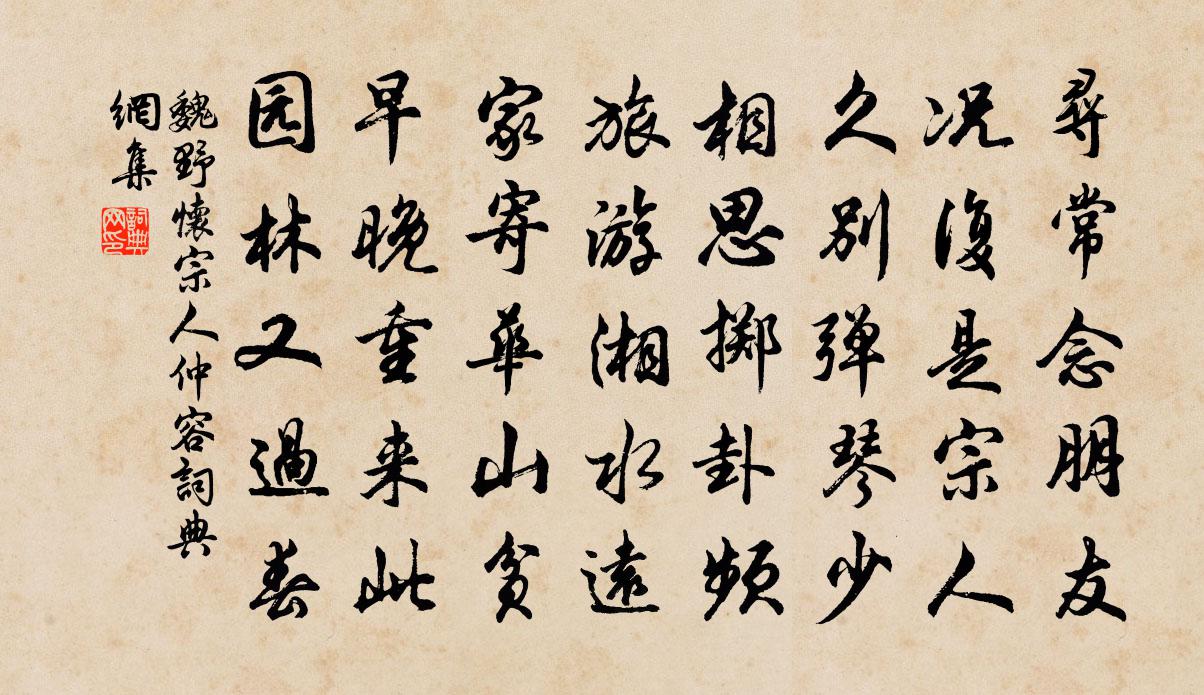 尋常念朋友
况復是宗人
久别弹琴少
相思掷卦频
旅游湘水遠
家寄華山貧
早晚重来此
园林又過春
魏野懷宗人仲容詞典
網集
詞典
网印